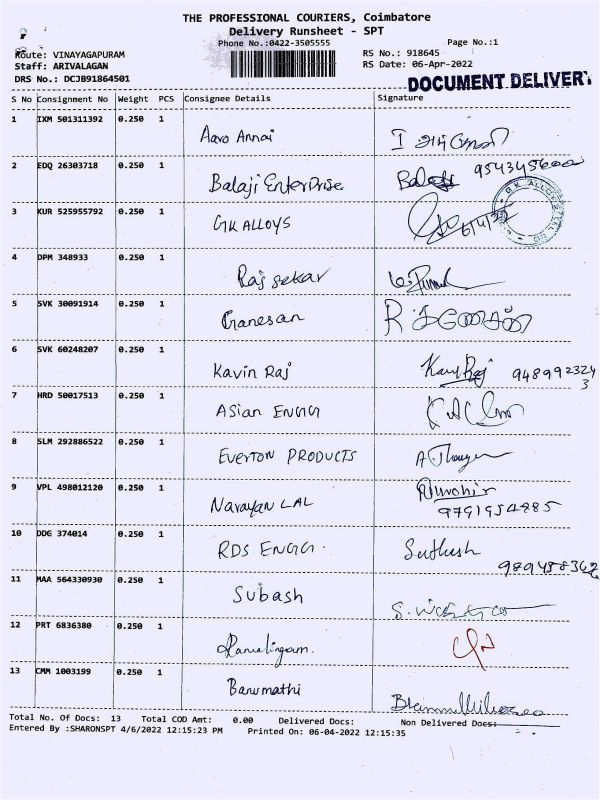 THE PROFESSIONAL COURIERS, Coimbatore
Delivery Runsheet - SPT
Phone No.:0422-3505555
Page No.:1
Route: VINAYAGAPURAM
RS No.: 918645
Staff: ARIVALAGAN
RS Date: 06-Apr-2022
DRS No.: DCJB91864501
DOCUMENT DELIVERY
S No Consignment No Weight PCS Consignee Details Signature
1 IXM 501311392 0.250 1 Aaro Annai
2 EDQ 26303718 0.250 1 Balaji Enterprise Balaji 9543456000
3 KUR 525955792 0.250 1 GK ALLOYS 6/4/22
4 DPM 348933 0.250 1 Raj sekar
5 SVK 30091914 0.250 1 Ganesan
6 SVK 60248207 0.250 1 Kavin Raj 9489923243
7 HRD 50017513 0.250 1 Asian ENGG
8 SLM 292886522 0.250 1 Everton PRODUCTS
9 VPL 498012120 0.250 1 Narayan LAL 9791954885
10 DDG 374014 0.250 1 RDS ENGG. Sathesh
11 MAA 564330930 0.250 1 Subash
12 PRT 6836380 0.250 1 Ramalingam.
13 CMM 1003199 0.250 1 Banumathi
Total No. Of Docs: 13 Total COD Amt: 0.00 Delivered Docs: Non Delivered Docs:
Entered By :SHARONSPT 4/6/2022 12:15:23 PM Printed On: 06-04-2022 12:15:35